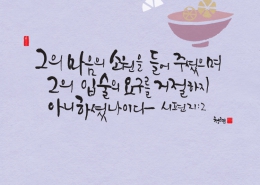 그의 마음의 소원을 들어 주셨으며
그의 입술의 요구를 거절하지
아니하셨나이다- 시편 21:2